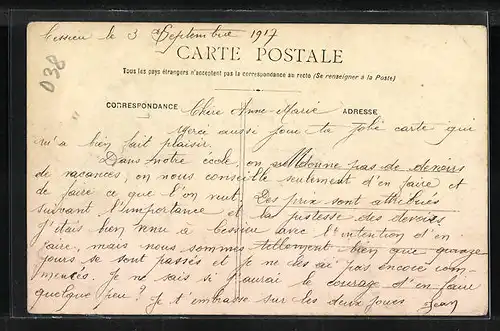 Cessieu le 3 Septembre 1917
CARTE POSTALE
Tous les pays étrangers n'acceptent pas la correspondance au recto (Se renseigner à la Poste)
038
CORRESPONDANCE
ADRESSE
Chère Anne-Marie
Merci aussi pour ta jolie carte qui
m'a bien fait plaisir.
Dans notre école, on ne donne pas de devoirs
de vacances, on nous conseille seulement d'en faire et
de faire ce que l'on veut. Des prix sont attribués
suivant l'importance et la justesse des devoirs.
J'étais bien venu à Cessieu avec l'intention d'en
faire, mais nous sommes tellement bien que quinze
jours se sont passés et je ne les ai pas encore com-
mencés. Je ne sais si j'aurai le courage d'en faire
quelque peu? Je t'embrasse sur les deux joues Jean